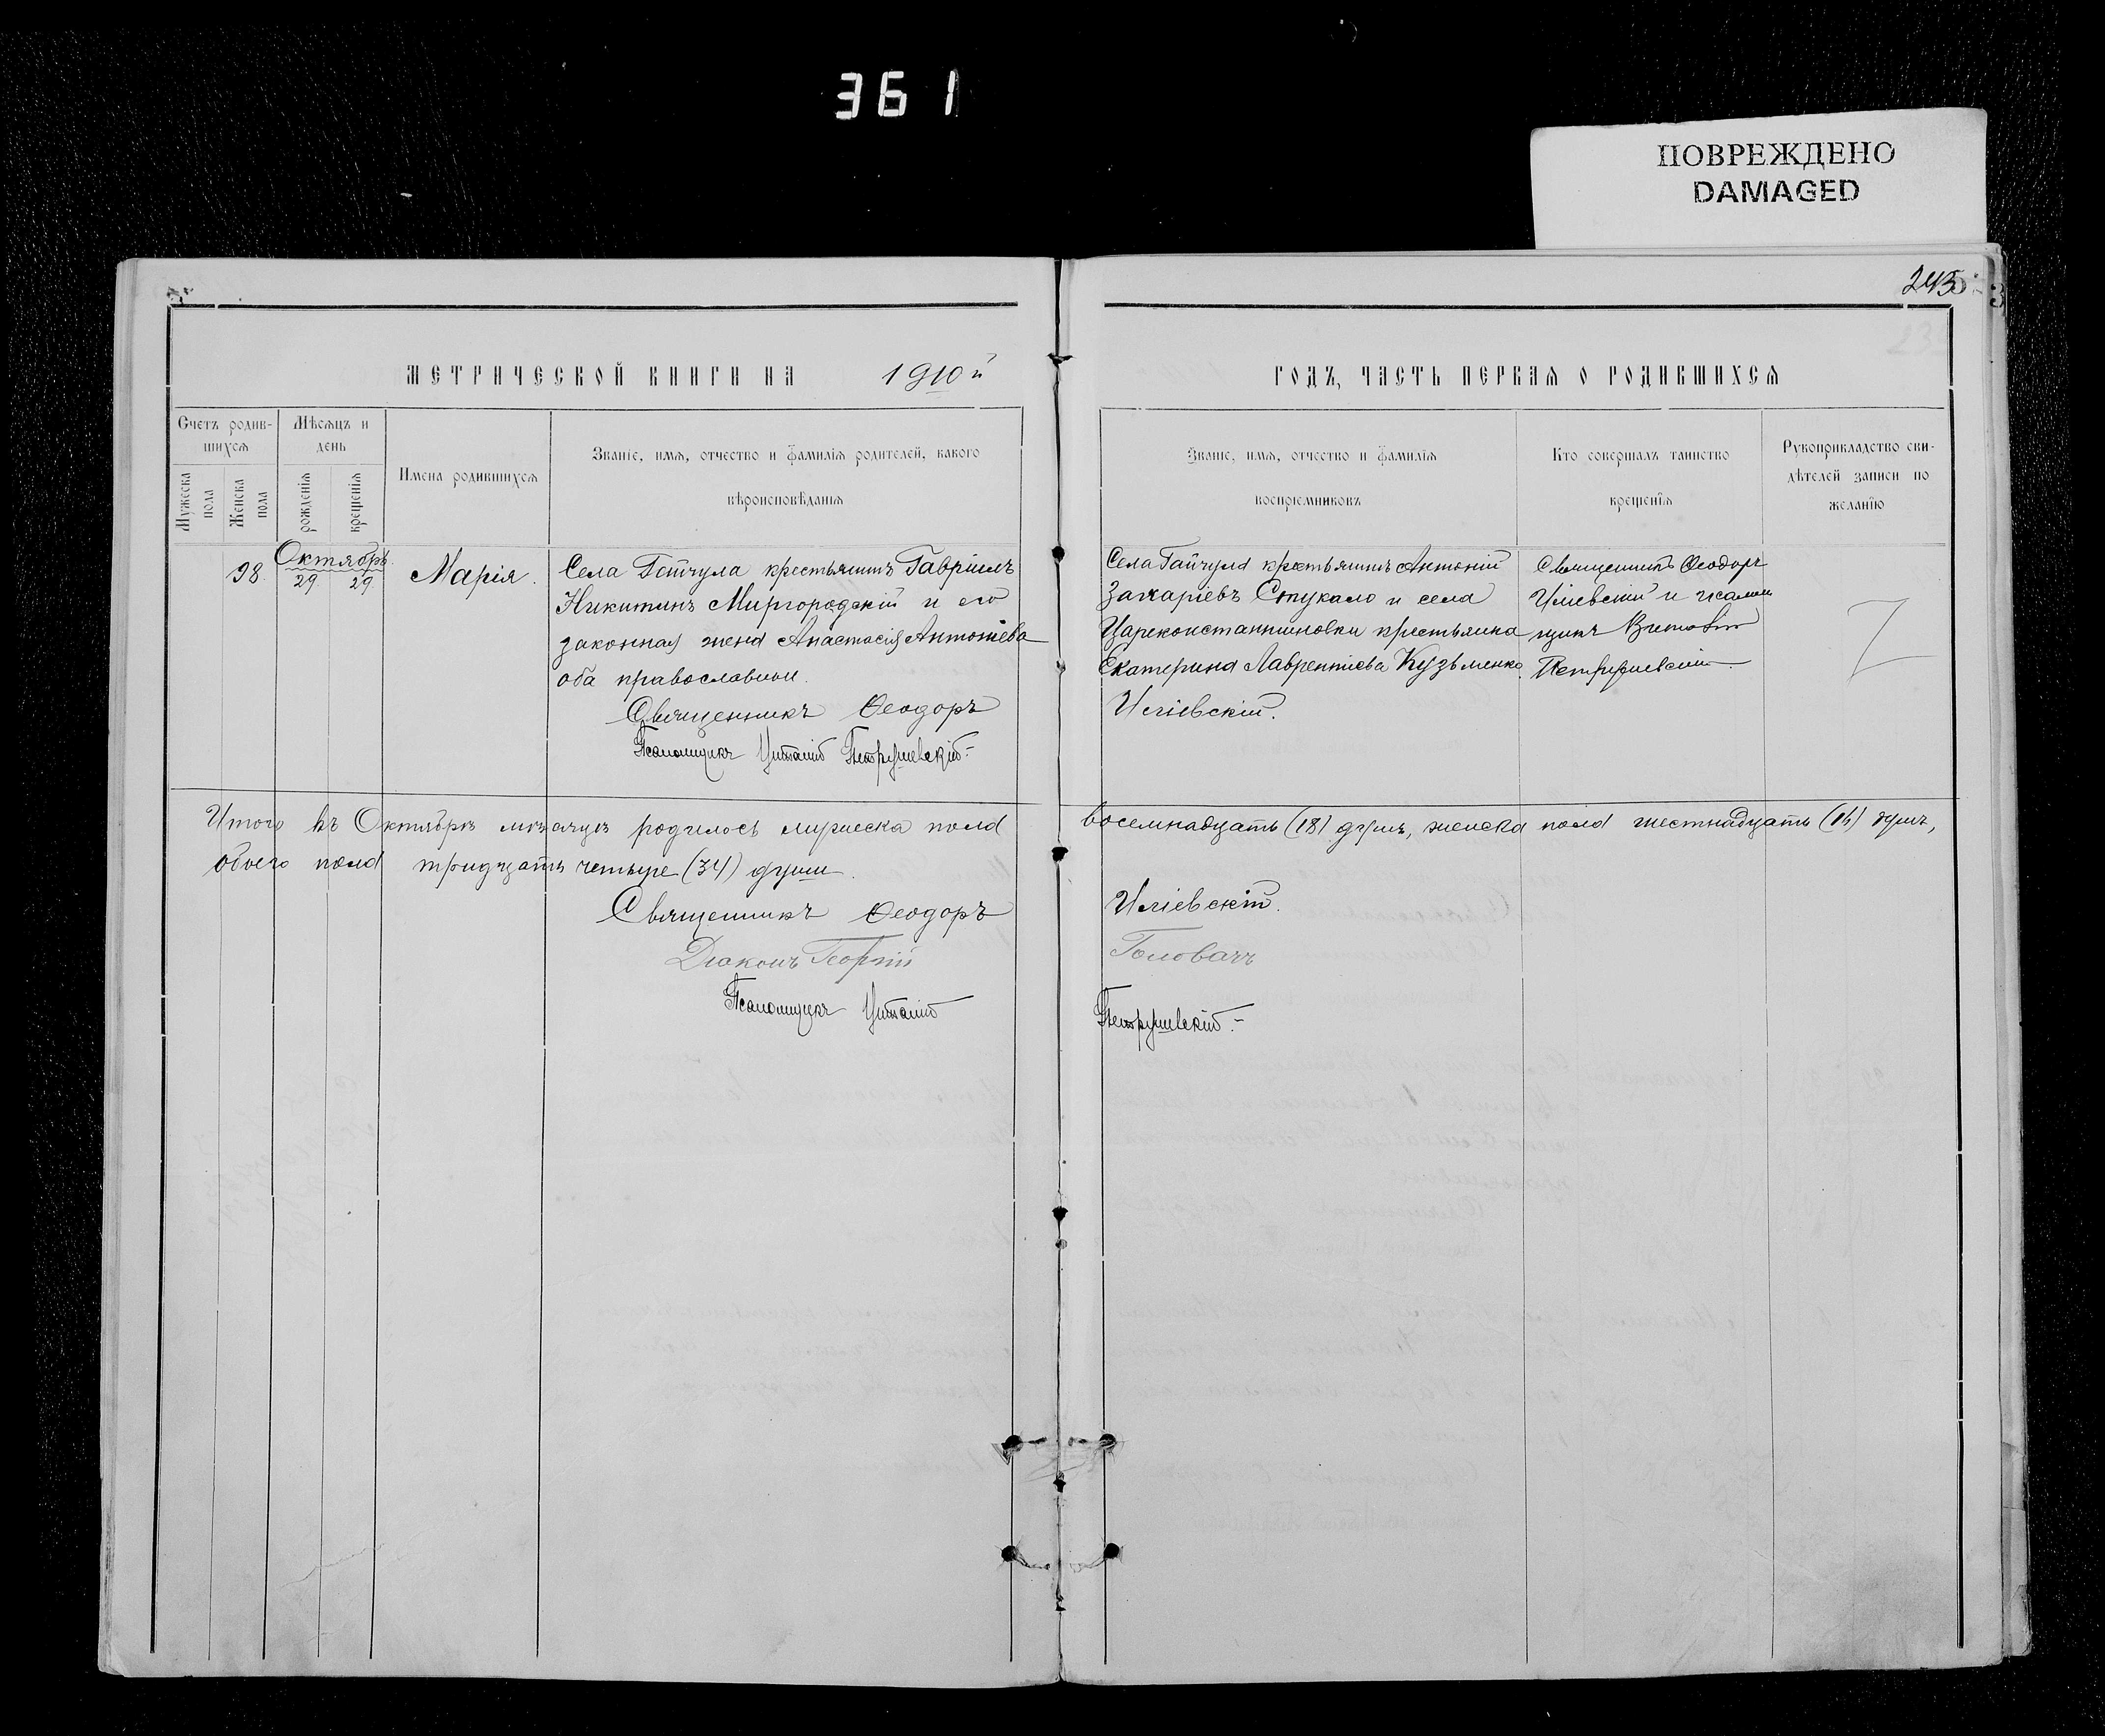 361
ПОВРЕЖДЕНО
DAMAGED
243
МЕТРИЧЕСКОЙ КНИГИ НА 1910й
ГОДЪ, ЧАСТЬ ПЕРВАЯ О РОДИВШИХСЯ
Счетъ родив-
шихся
Мужеска
пола
Женска
пола
Мѣсяцъ и
день
рожденія
крещенія
Имена родившихся
Званіе, имя, отчество и фамилія родителей, какого
вѣроисповѣданія
Званіе, имя, отчество и фамилія
воспріемниковъ
Кто совершалъ таинство
крещенія
Рукоприкладство сви-
дѣтелей записи по
желанію
98.
Октябрь.
29 29
Марія.
Села Гайчула крестьянинъ Гавріилъ
Никитинъ Миргородскій и его
законная жена Анастасія Антоніева
оба православнои.
Священникъ Ѳеодоръ
Псаломщикъ Виталій Петрушевскій.-
Села Гайчула крестьянинъ Антоній
Захаріевъ Стукало и села
Цареконстантиновки крестьянка
Екатерина Лаврентіева Кузьменко.
Иліевскій.
Священникъ Ѳеодоръ
Иліевскій и псалом
щикъ Виталій
Петрушевскій.
Итого въ Октябрѣ мѣсяцѣ родилось мужеска пола восемнадцать (18) душъ, женска пола шестнадцать (16) душъ,
обоего пола тридцать четыре (34) души.
Священникъ Ѳеодоръ Иліевскій.
Діаконъ Георгій Головачъ
Псаломщикъ Виталій Петрушевскій.-